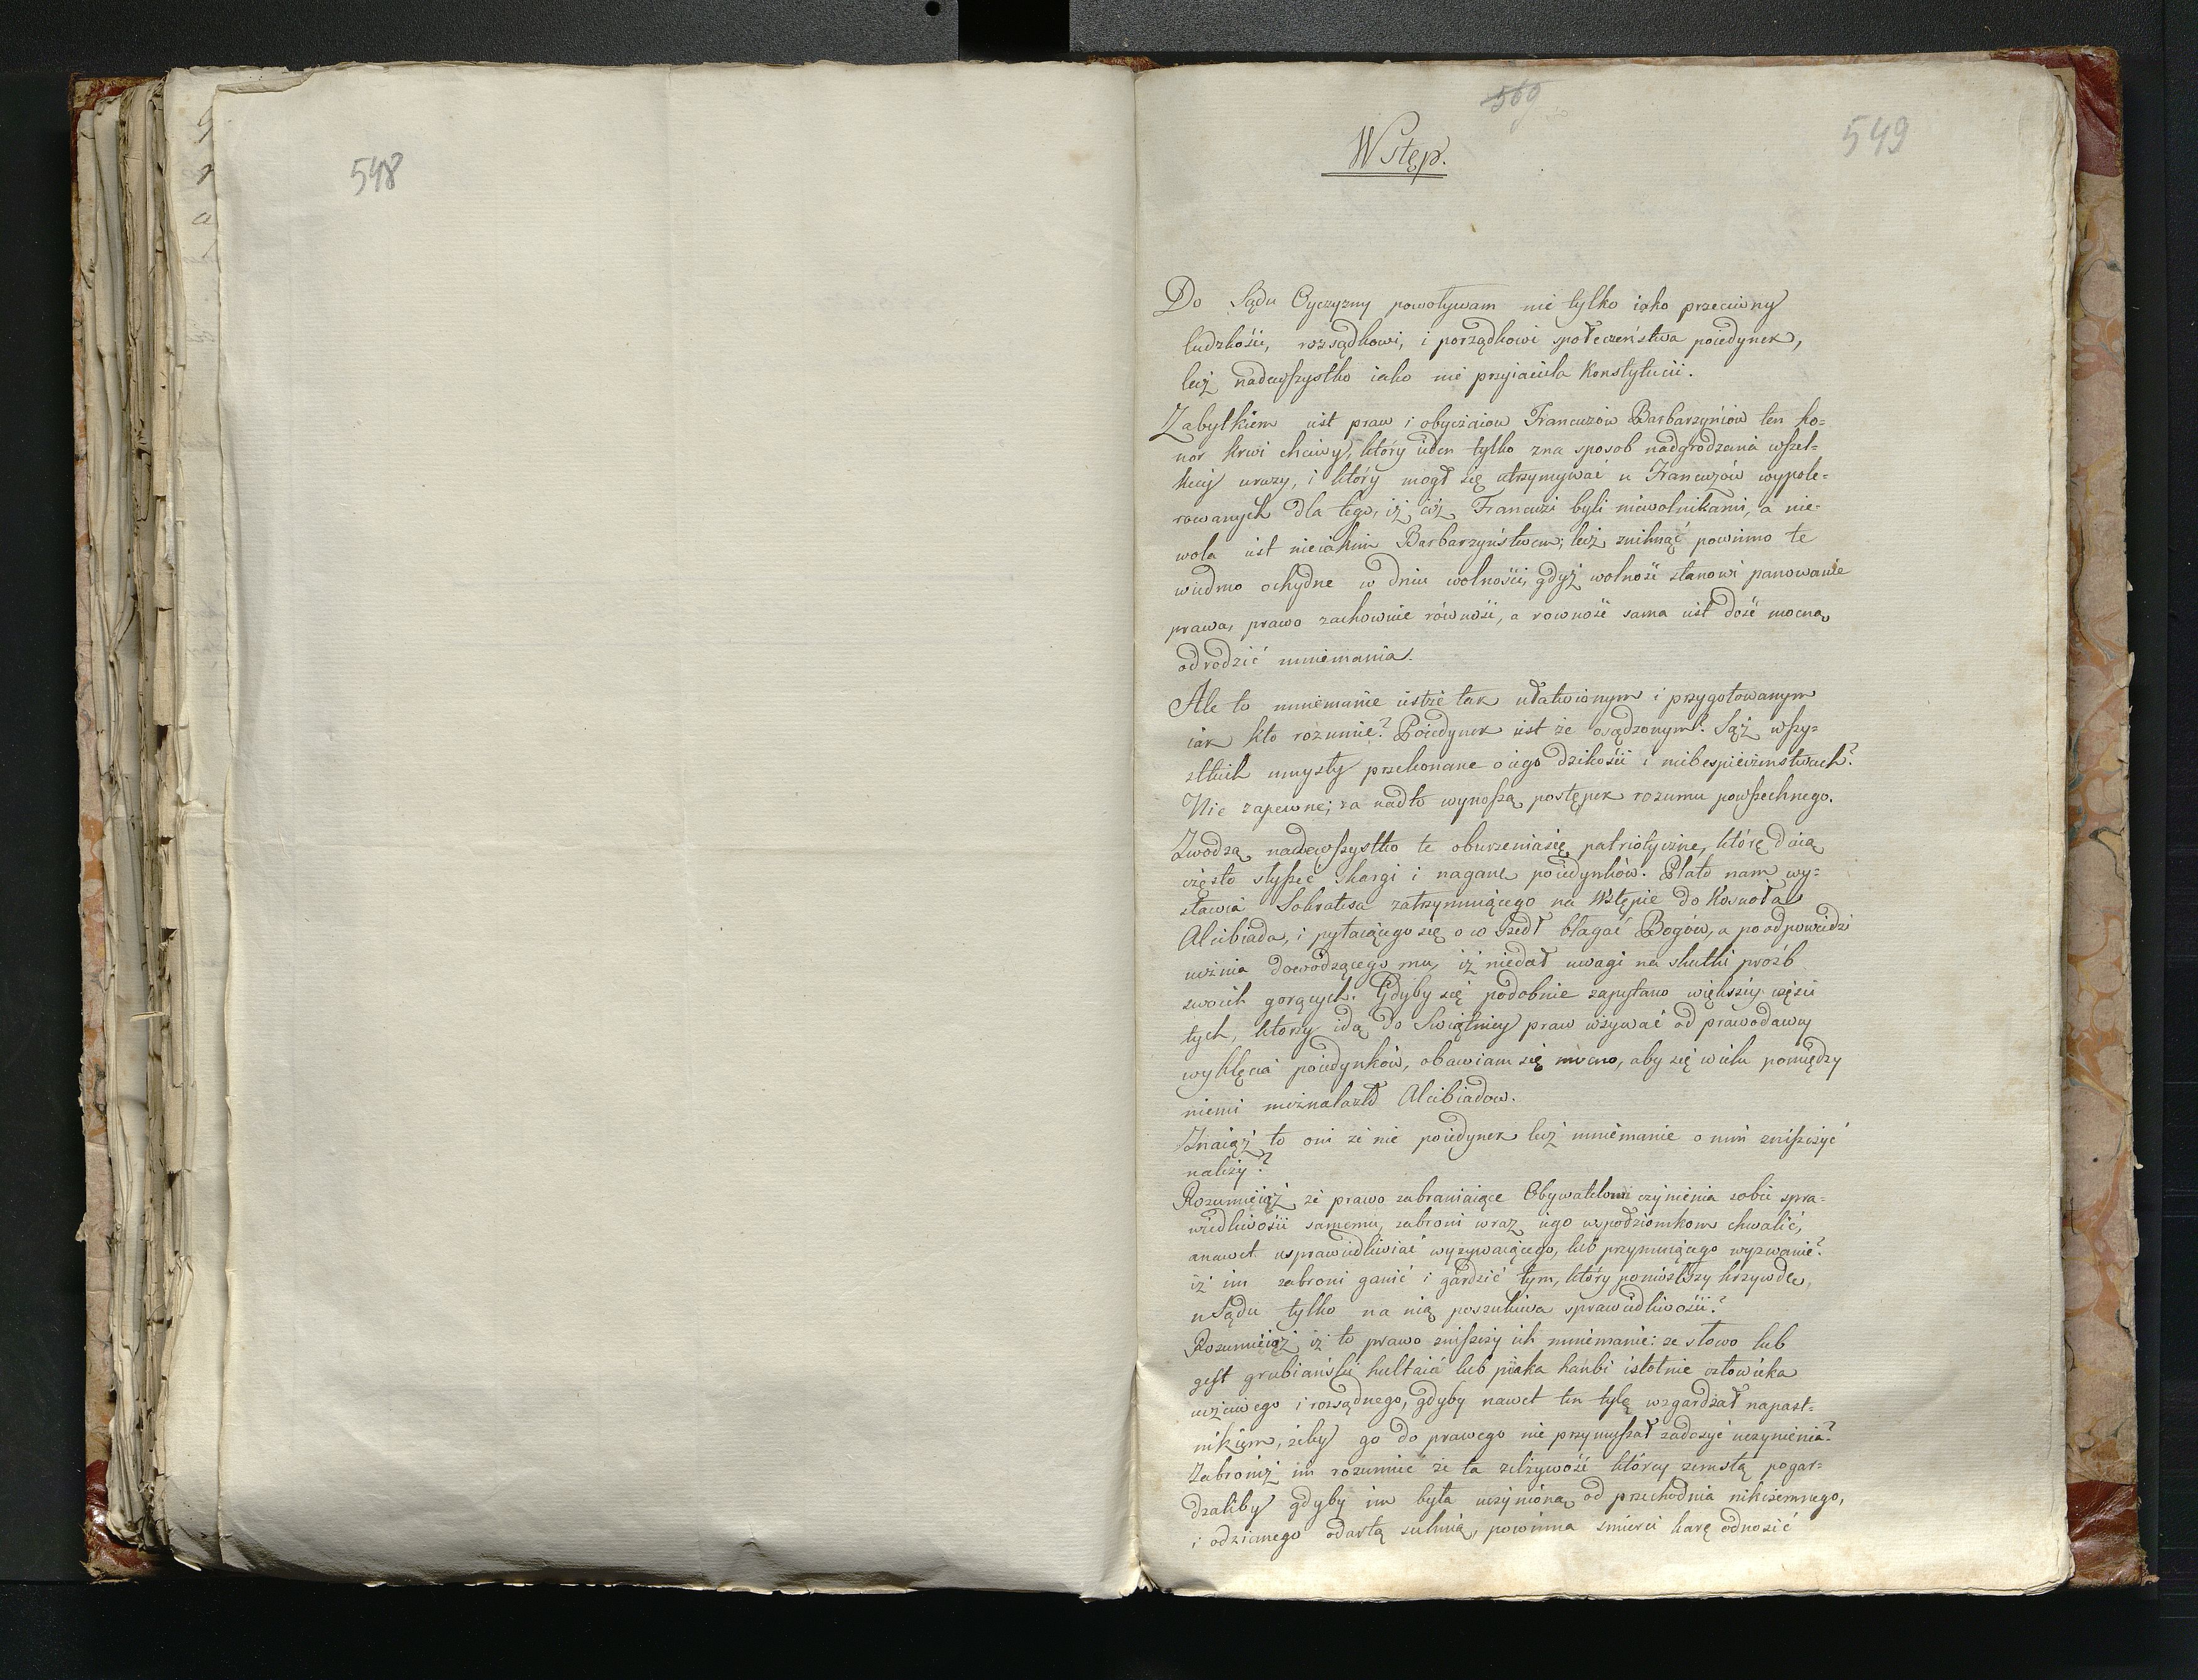 548
569
549
Wstęp.
Do Sądu Oyczyzny powoływam nie tylko iako przeciwny
ludzkości, rozsądkowi, i porządkowi społeczeństwa poiedynek,
lecz nadewszystko iako nie przyiaciela Konstytucii.
Zabytkiem iest praw i obyczaiow Francuzów Barbarzyńców ten ho-
nor krwi chciwy, który ieden tylko zna sposob nadgrodzenia wszel-
kiey urazy, i który mogł się utrzymywać u Francuzów wypole-
rowanych dla tego, iż ciż Francuzi byli niewolnikami, a nie-
wola iest nieiakim Barbarzyństwem; lecz zniknąć powinno te
widmo ochydne w dniu wolności, gdyż wolność stanowi panowanie
prawa, prawo zachownie równości, a rowność sama iest dość mocna
odrodzić mniemania.
Ale to mniemanie iestże tak ułatwionym i przygotowanym
iak kto rozumie? Poiedynek iest że osądzonym? Sąż wszy-
stkich umysły przekonane o iego dzikości i niebespieczeństwach?
Nie zapewne; za nadto wynoszą postępek rozumu powszechnego.
Zwodzą nadewszystko te oburzeniasię patriotyczne, które daią
często słyszeć skargi i nagane poiedynków. Plato nam wy-
stawia Sokratesa zatrzymuiącego na Wstępie do Kosnoła
Alcibiada, i pytaiącego się o co szedł błagać Bogów, a po odpowiedzi
ucznia dowodzącego mu, iż niedał uwagi na skutki prośb
swoich gorących. Gdyby się podobnie zapytano większey części
tych, którzy idą do Swiątnicy praw wzywać od prawodawcy
wyklęcia poiedynków, obawiam się mocno, aby się wielu pomiędzy
niemi nieznalazło Alcibiadow.
Znaiąż to oni że nie poiedynek lecz mniemanie o nim zniszczyć
należy?
Rozumieiąż, że prawo zabraniaiące Obywatelowi czynienia sobie spra-
wiedliwości samemu, zabroni wraz iego wspołziomkom chwalić,
anawet usprawiedliwiać wyzywaiącego, lub przymuiącego wyzwanie?
iż im zabroni ganić i gardzić tym, który poniosłszy krzywdę,
u Sądu tylko na nią poszukiwa sprawiedliwości?
Rozumieiąż iż to prawo zniszczy ich mniemanie: że słowo lub
gest grubiański hultaia lub piaka hańbi istotnie człowieka
uczciwego i rozsądnego, gdyby nawet ten tyle wzgardzał napast-
nikiem, żeby go do prawego nie przymuszał zadosyć uczynienia?
Zabroniż im rozumieć że ta zelżywość którey zemstą pogar-
dzaliby gdyby im była uczyniona od przechodnia nikczemnego,
i odzianego odartą suknią, powinna śmierci karę odnosić